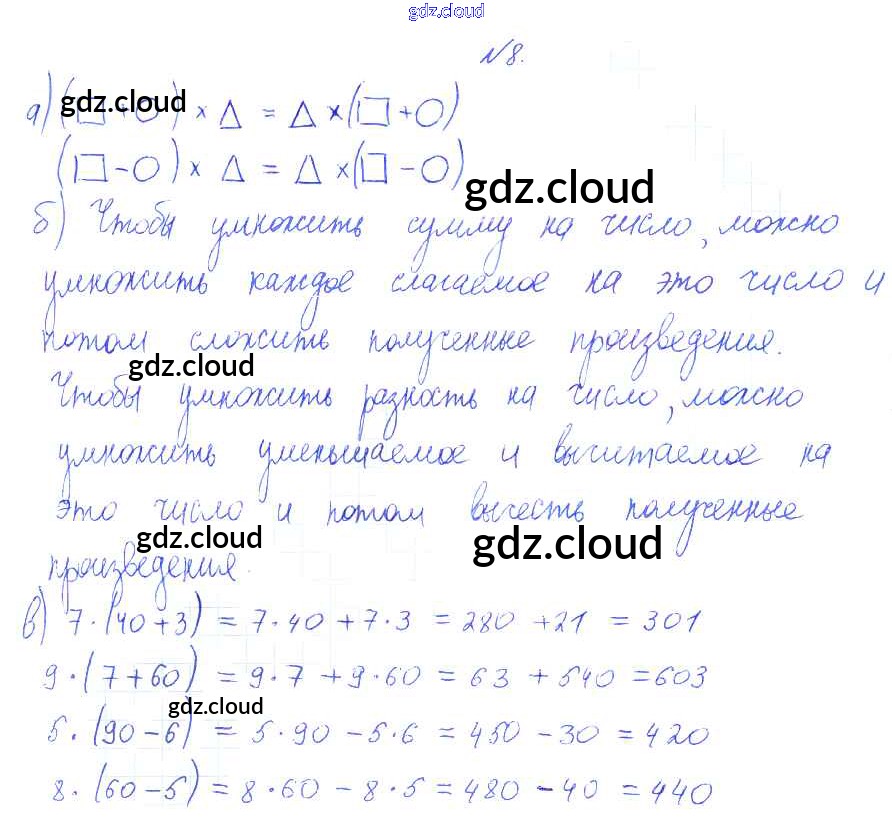 gdz.cloud
№8.
а) (□+○) × △ = △ × (□+○)
gdz.cloud
(□-○) × △ = △ × (□-○)
gdz.cloud
б) Чтобы умножить сумму на число, можно
умножить каждое слагаемое на это число и
потом сложить полученные произведения.
gdz.cloud
Чтобы умножить разность на число, можно
умножить уменьшаемое и вычитаемое на
это число и потом вычесть полученные
gdz.cloud
gdz.cloud
произведения.
в) 7·(40+3) = 7·40+7·3 = 280+21 = 301
9·(7+60) = 9·7+9·60 = 63+540 = 603
gdz.cloud
5·(90-6) = 5·90-5·6 = 450-30 = 420
8·(60-5) = 8·60-8·5 = 480-40 = 440